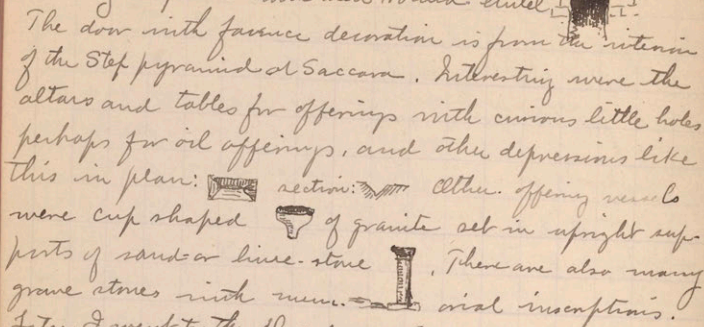 The door with faience decoration is from the interior
of the Step pyramid at Saccara. Interesting were the
altars and tables for offerings with curious little holes
perhaps for oil offerings, and other depressions like
this in plan: section: Other offering vessels
were cup shaped of granite set in upright sup-
ports of sand- or lime-stone . There are also many
grave stones with mem- orial inscriptions.
I went